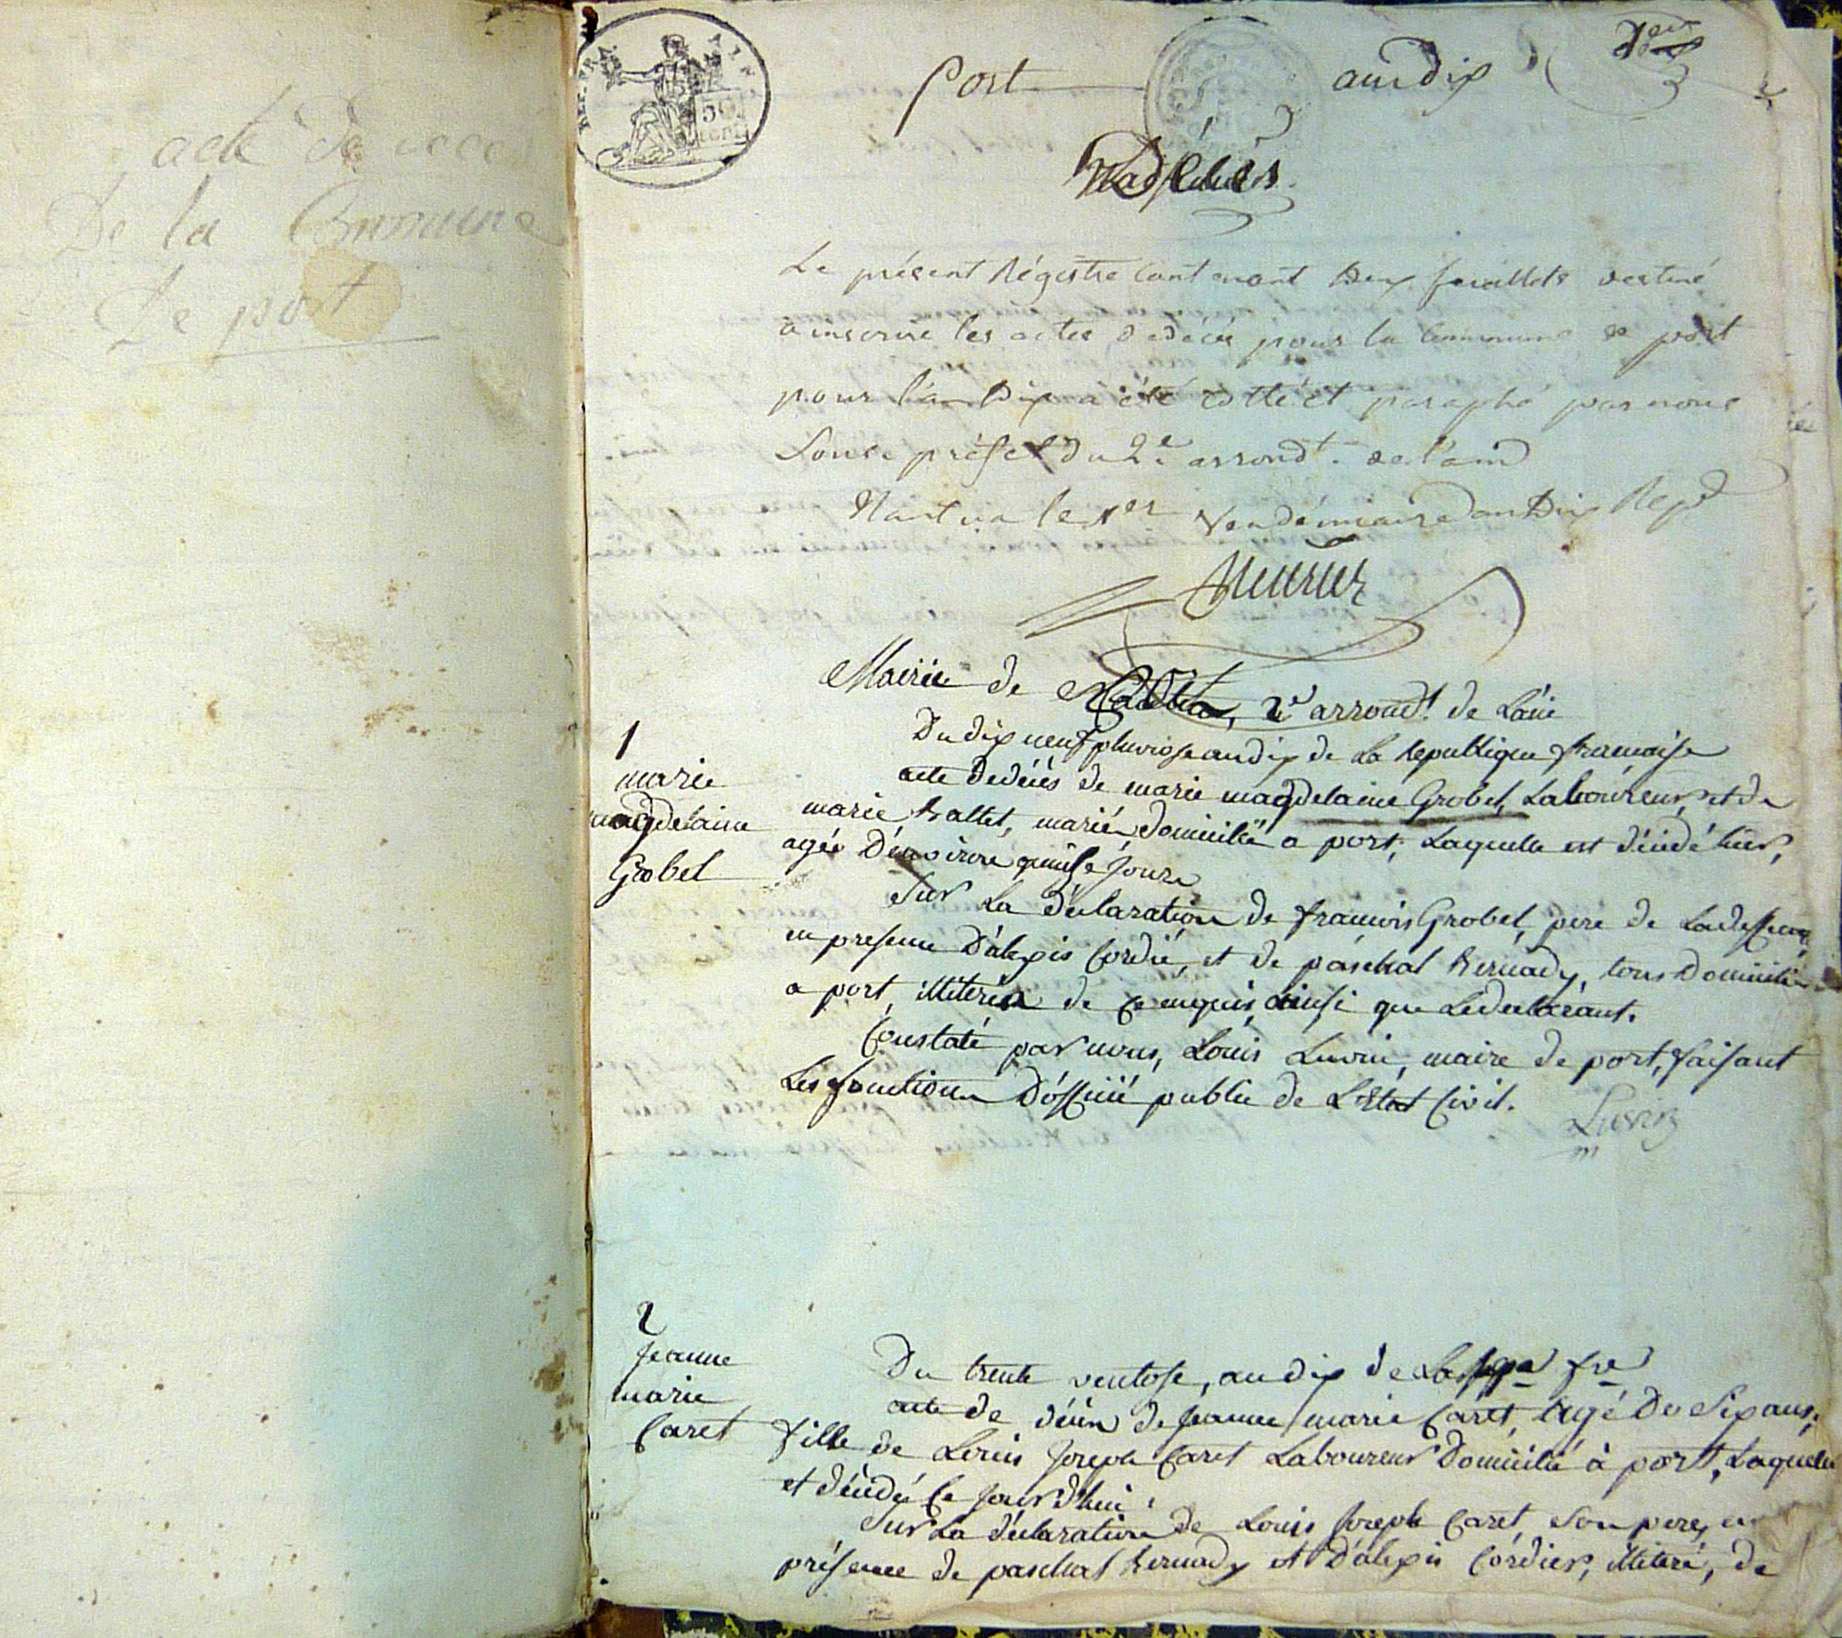 acte de
De la Commune
De port
REP. FRA.
AIN
50
CENT
Port
an dix
Décès
Le présent Régistre Contenant Dix feuillets destiné
a inscrire les actes de décès pour la Commune de port
pour l'an Dix a été Cotté et paraphé par nous
Sous préfet du 2e arrondt. de l'ain
Nantua le 1er Vendémiaire an Dix Rep
Mairie de Port, 2e arrondt. de L'ain
1
marie
magdelaine
Grobel
Du dix neuf pluviose an dix de La republique francaise
acte de décés de marie magdelaine Grobel, Laboureur, et de
marie Ballet, mariés, domiciliés a port, Laquelle est décédé hier,
agée D'environ quinse Jours
Sur La déclaration de francois Grobel, pere de La deffunte
en presence D'alexis Cordié, et de paschal Bernady, tous Domiciliés
a port, illiterés de ce enquis, ainsi que Le declarant.
Constaté par nous, Louis Luvin, maire de port, faisant
Les fonctions D'officié public de L'Etat Civil.
Luvin
m
2
Jeanne
marie
Caret
Du trente ventose, an dix de La rep fse
acte de décès de Jeanne marie Caret, agé De Six ans,
fille de Louis Joseph Caret Laboureur Domicilié à port, Laquelle
et décédé Ce Jourd'hui.
Sur La déclaration de Louis Joseph Caret, Son pere, en
présence de paschal Bernady et D'alexis Cordier, illiteré, de